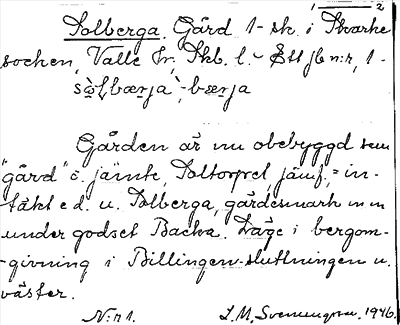 1 2
Solberga. Gård 1-sk. i Skarke
socken, Valle hr, Skb. l. - Ett jb n:r, 1-
sòlbærja, -bærja
Gården är nu obebyggd som
"gård" o. jämte Soltorpet jämf. = in-
täkt e d. u. Solberga, gärdesmark m m
under godset Backa. Läge i bergom-
-givning i Billingen-sluttningen u.
väster.
N:r 1. L. M. Svenungsson. 1946.